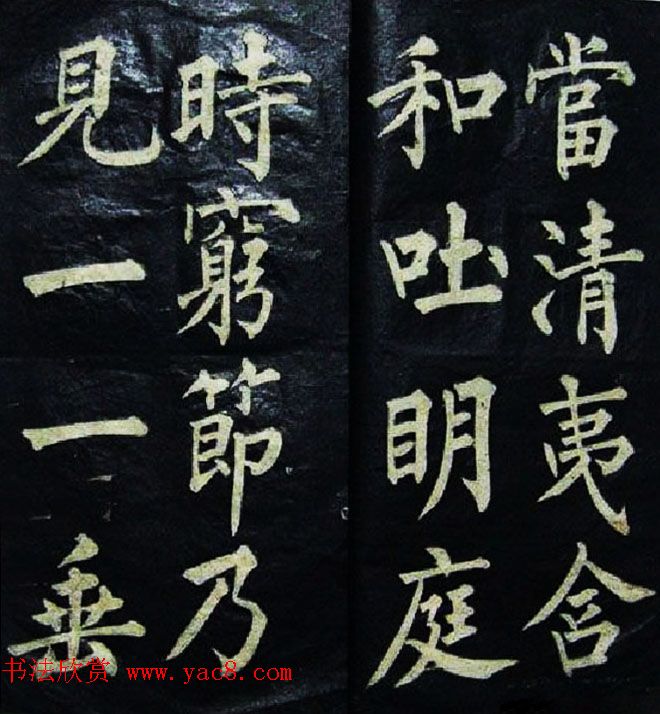 當清夷含
和吐明庭
時窮節乃
見一一垂
书法欣赏 www.yac8.com